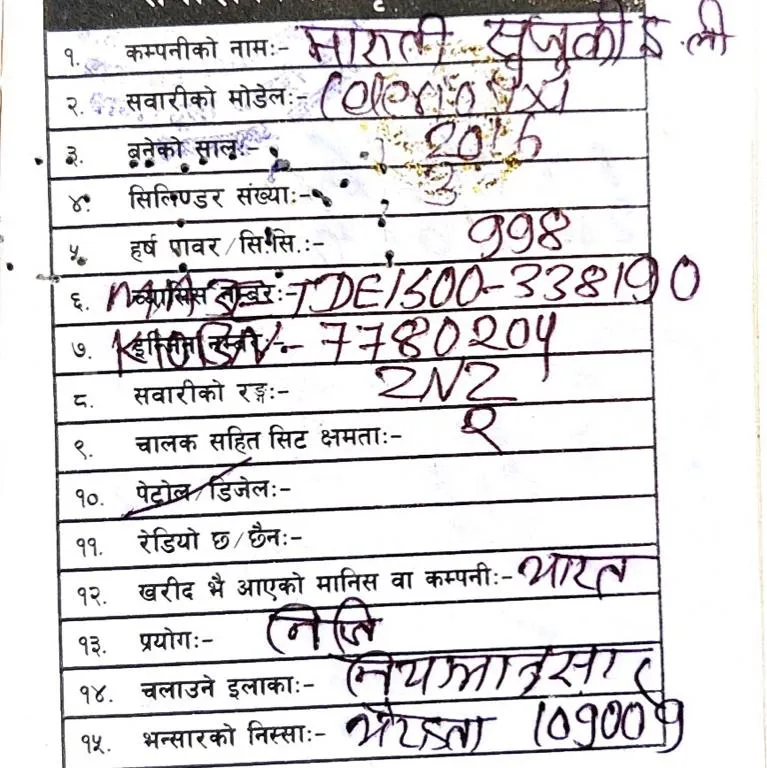 १. कम्पनीको नामः- मारुती सुजुकी इ.ली
२. सवारीको मोडेलः-
३. बनेको सालः- 2016
४. सिलिण्डर संख्याः- 3
५ हर्ष पावर/सि.सि.ः- 998
६. च्यासिस नम्बरः- TDE1S00-338190
७. इन्जिन नम्बरः- K10BN- 7780204
८. सवारीको रङ्गः-
९. चालक सहित सिट क्षमताः-
१०. पेट्रोल/डिजेलः-
११. रेडियो छ/छैनः-
१२. खरीद भै आएको मानिस वा कम्पनीः- भारत
१३. प्रयोगः- निजि
१४. चलाउने इलाकाः- नियमानुसार
१५. भन्सारको निस्साः-